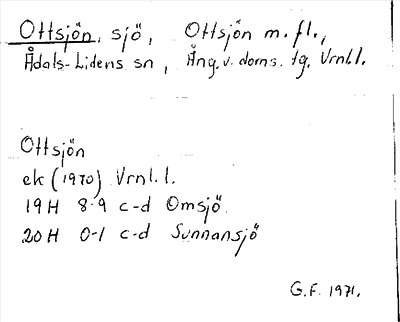 Ottsjön, sjö, Ottsjön m.fl.,
Ådals-Lidens sn, Ång. v. doms. tg. Vrnl.l.
Ottsjön
ek (1970) Vrnl.l.
19H 8-9 c-d Omsjö
20H 0-1 c-d Sunnansjö
G.F. 1971.